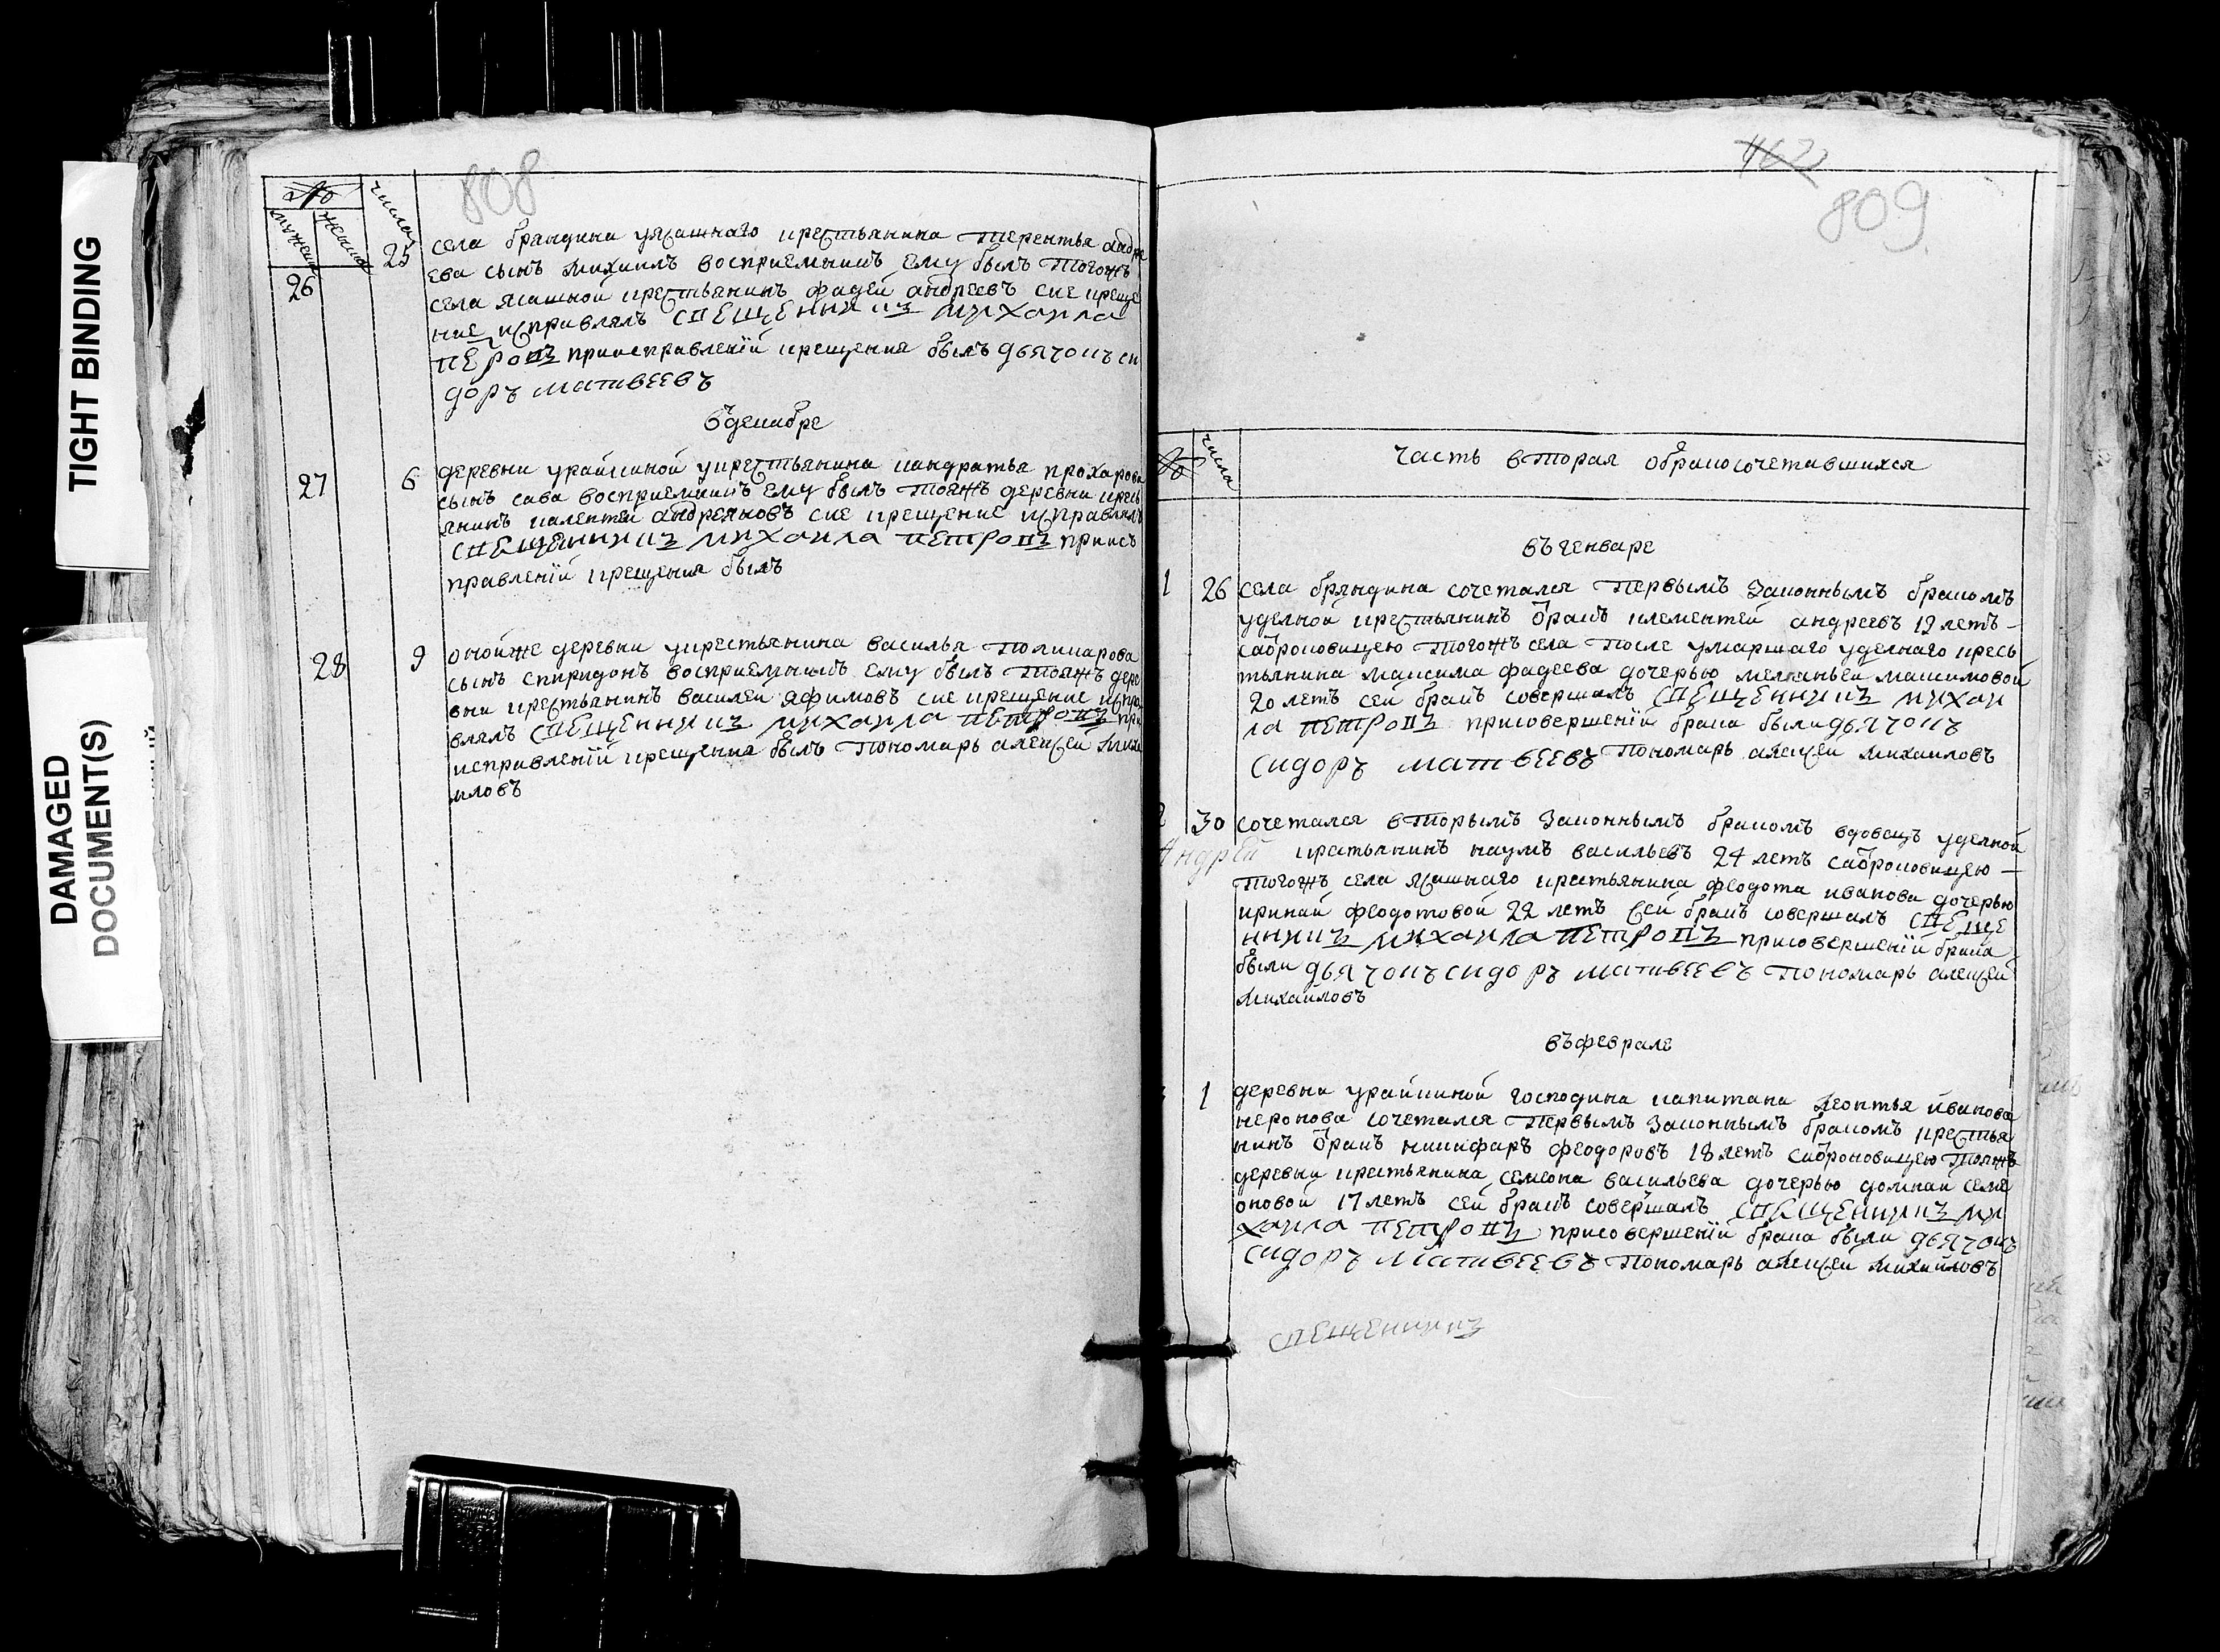 TIGHT BINDING
DAMAGED
DOCUMENT(S)
808
№
числа
мужеска
женска
26
25
села брандина уясашнаго крестьянина терентья андре
ева сынъ михаилъ восприемникъ ему былъ тогожъ
села ясашной крестьянинъ фадей андреевъ сие креще
ние исправлялъ священникъ михаила
петровъ приисправленiи крещения былъ дьячокъ си
доръ матвеевъ
въ декабре
27
6
деревни урайкиной укрестьянина кандратья прохарова
сынъ сава восприемникъ ему былъ тояжъ деревни кресь
янинъ калентей андреяновъ сие крещение исправлялъ
священникъ михаила петровъ приис
правленiи крещения былъ
28
9
онойже деревни укрестьянина василья поликарова
сынъ спиридонъ восприемникъ ему былъ тояжъ дере
вни крестьянинъ василей яфимовъ сие крещение испра
влялъ священникъ михаила петровъ при
исправленiи крещения былъ пономарь алексей миха
иловъ
462
809
№
числа
часть вторая обракосочетавшихся
въ генваре
1
26
села брандина сочетался первымъ законнымъ бракомъ
уделной крестьянинъ отракъ клементей андреевъ 19 летъ
сатроковицею тогожъ села после умаршаго уделнаго кресь
тьянина максима фадеева дочерью меланьей максимовой
20 летъ сей бракъ совершалъ священникъ михаи
ла петровъ присовершенiи брака были дьячокъ
сидоръ матвеевъ пономарь алексей михаиловъ
2
30
сочетался вторымъ законнымъ бракомъ вдовецъ уделной
Андрей
крестьянинъ наумъ васильевъ 24 летъ сатроковицею
тогожъ села ясашнаго крестьянина феодота иванова дочерью
ириной феодотовой 22 летъ сей бракъ совершалъ свяще
нникъ михаила петровъ присовершенiи брака
были дьячокъ сидоръ матвеевъ пономарь алексей
михаиловъ
въ феврале
1
деревни урайкиной господина капитана леонтья иванова
неронова сочетался первымъ законнымъ бракомъ крестья
нинъ отракъ никифаръ феодоровъ 18 летъ сатроковицею тояжъ
деревни крестьянина семиона васильева дочерью домной семи
оновой 17 летъ сей бракъ совершалъ священникъ ми
хаила петровъ присовершенiи брака были дьячокъ
сидоръ матвеевъ пономарь алексей михаиловъ
священникъ